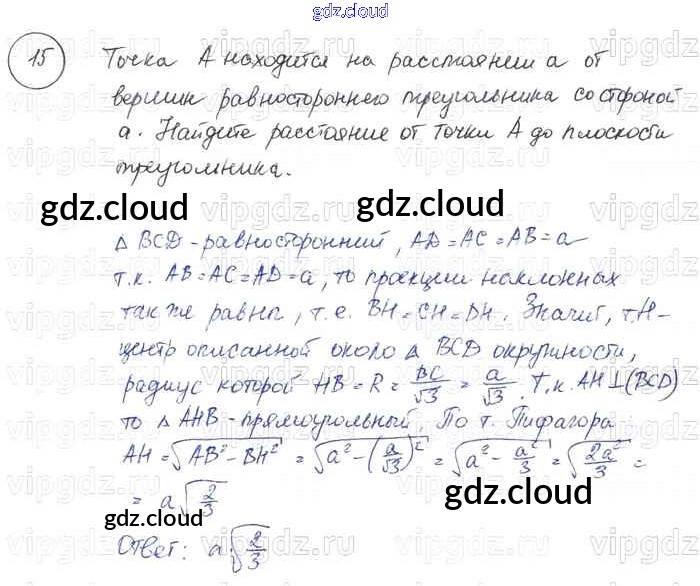 gdz.cloud
15 Точка А находится на расстоянии а от
вершин равностороннего треугольника со стороной
а. Найдите расстояние от точки А до плоскости
треугольника.
gdz.cloud gdz.cloud
△ BCD - равносторонний, AD = AC = AB = a
т.к. AB = AC = AD = a, то проекции наклонных
также равны, т.е. BH = CH = DH. Значит, т. H -
центр описанной около △ BCD окружности,
радиус которой HB = R = BC/√3 = a/√3. Т.к. AH ⊥ (BCD)
то △ AHB - прямоугольный. По т. Пифагора
AH = √(AB² - BH²) = √(a² - (a/√3)²) = √(a² - a²/3) = √(2a²/3) =
= a√(2/3)
gdz.cloud gdz.cloud
Ответ: a√(2/3)
vipgdz.ru